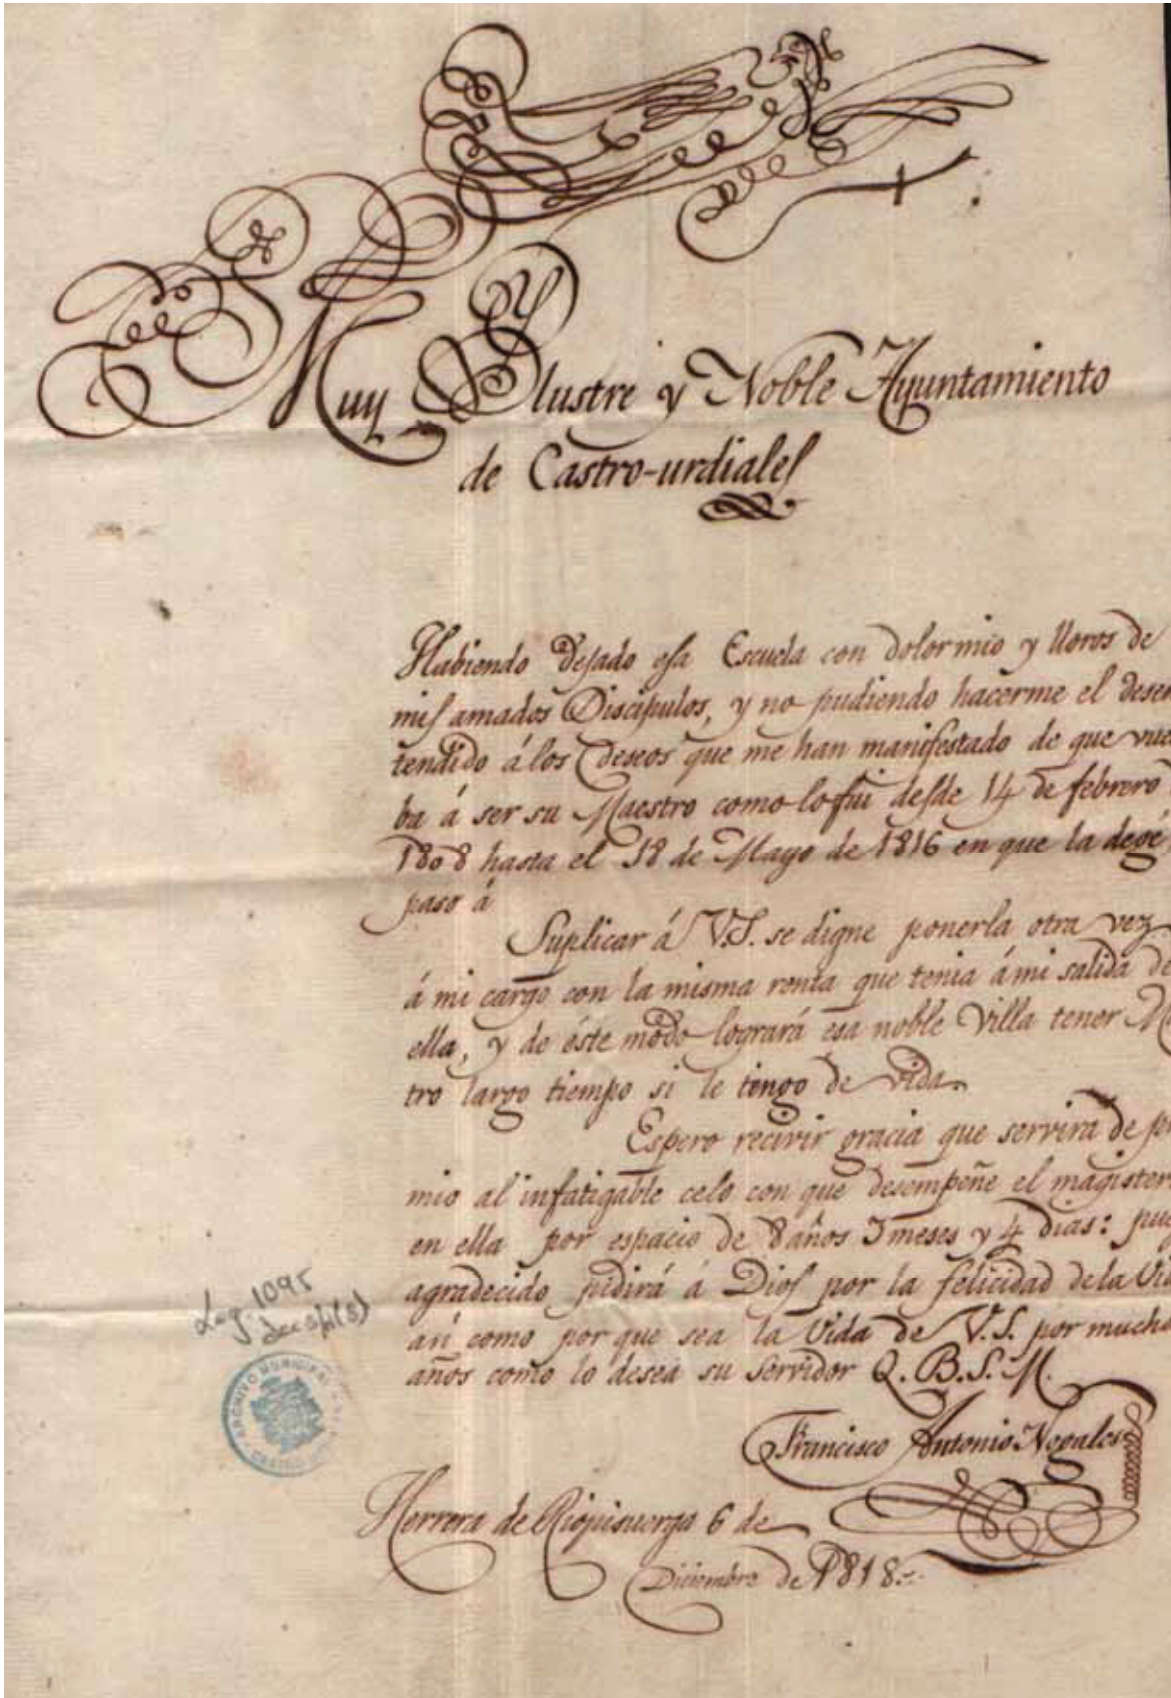 Muy Ylustre y Noble Ayuntamiento
de Castro-urdiales
Habiendo Dejado esa Escuela con dolor mio y lloros de
mis amados Discipulos, y no pudiendo hacerme el desen
tendido á los Deseos que me han manifestado de que vuel
ba á ser su Maestro como lo fui desde 14 de febrero
1808 hasta el 18 de Mayo de 1816 en que la degé,
paso á
Suplicar á V.S. se digne ponerla otra vez
á mi cargo con la misma renta que tenia á mi salida de
ella, y de éste modo logrará esa noble Villa tener
tro largo tiempo si le tengo de vida.
Espero recivir gracia que servira de
mio al infatigable celo con que desempeñe el magister
en ella por espacio de 8 años 3 meses y 4 dias:
agradecido pidirá á Dios por la felicidad de la
asi como por que sea la Vida de V.S. por mucho
años como lo desea su Servidor Q. B. S. M.
Francisco Antonio Nogales
Herrera de Riopisuerga 6 de
Diciembre de 1818.
Leg. 1095
ARCHIVO MUNICIPAL
CASTRO